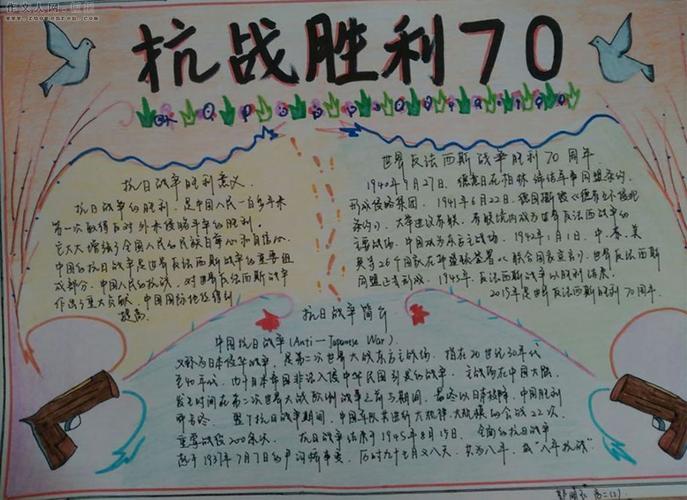 作文人网·画报
www.zuowenren.com
抗战胜利70
抗日战争胜利意义
抗日战争的胜利,是中国人民一百多年来
第一次取得反对外来侵略斗争的胜利。
它大大增强了全国人民的民族自尊心和自信心。
中国的抗日战争是世界反法西斯战争的重要组
成部分,中国人民的抗战,对世界反法西斯战争
作出了重大贡献,中国国际地位得到
提高。
世界反法西斯战争胜利70周年
1940年9月27日,德意日在柏林缔结军事同盟条约,
形成侵略集团。1941年6月22日,德国撕毁《德苏互不侵犯
条约》,大举进攻苏联,苏联
主战场,中国成为东方主战场。1942年1月1日,中、苏、美
英等26个国家在华盛顿签署《联合国家宣言》,世界反法西斯
同盟正式形成。1945年,反法西斯战争以胜利结束。
2015年是世界反法西斯胜利70周年。
抗日战争简介
中国抗日战争(Anti-Japanese War)
又称为日本侵华战争,是第二次世界大战东方主战场。指在20世纪30年代
至40年代,由日本帝国非法入侵中华民国引类的战争。主战场在中国大陆,
发生时间在第二次世界大战欧洲战争之前与期间,最终以日本投降,中国胜利
而告终。整个抗日战争期间,中国军队共进行大规模的会战22次,
重要战役200余次。抗日战争结束于1945年8月15日。全面的抗日战争
起于1937年7月7日的卢沟桥事变,历时九十七又八天,共为八年,或"八年抗战"